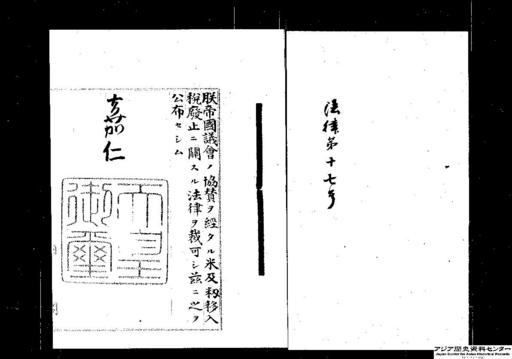 法律第十七号
朕帝國議會ノ協賛ヲ經タル米及籾移入
税廢止ニ關スル法律ヲ裁可シ茲ニ之ヲ
公布セシム
嘉仁
天皇御璽
アジア歴史資料センター
Japan Center for Asian Historical Records